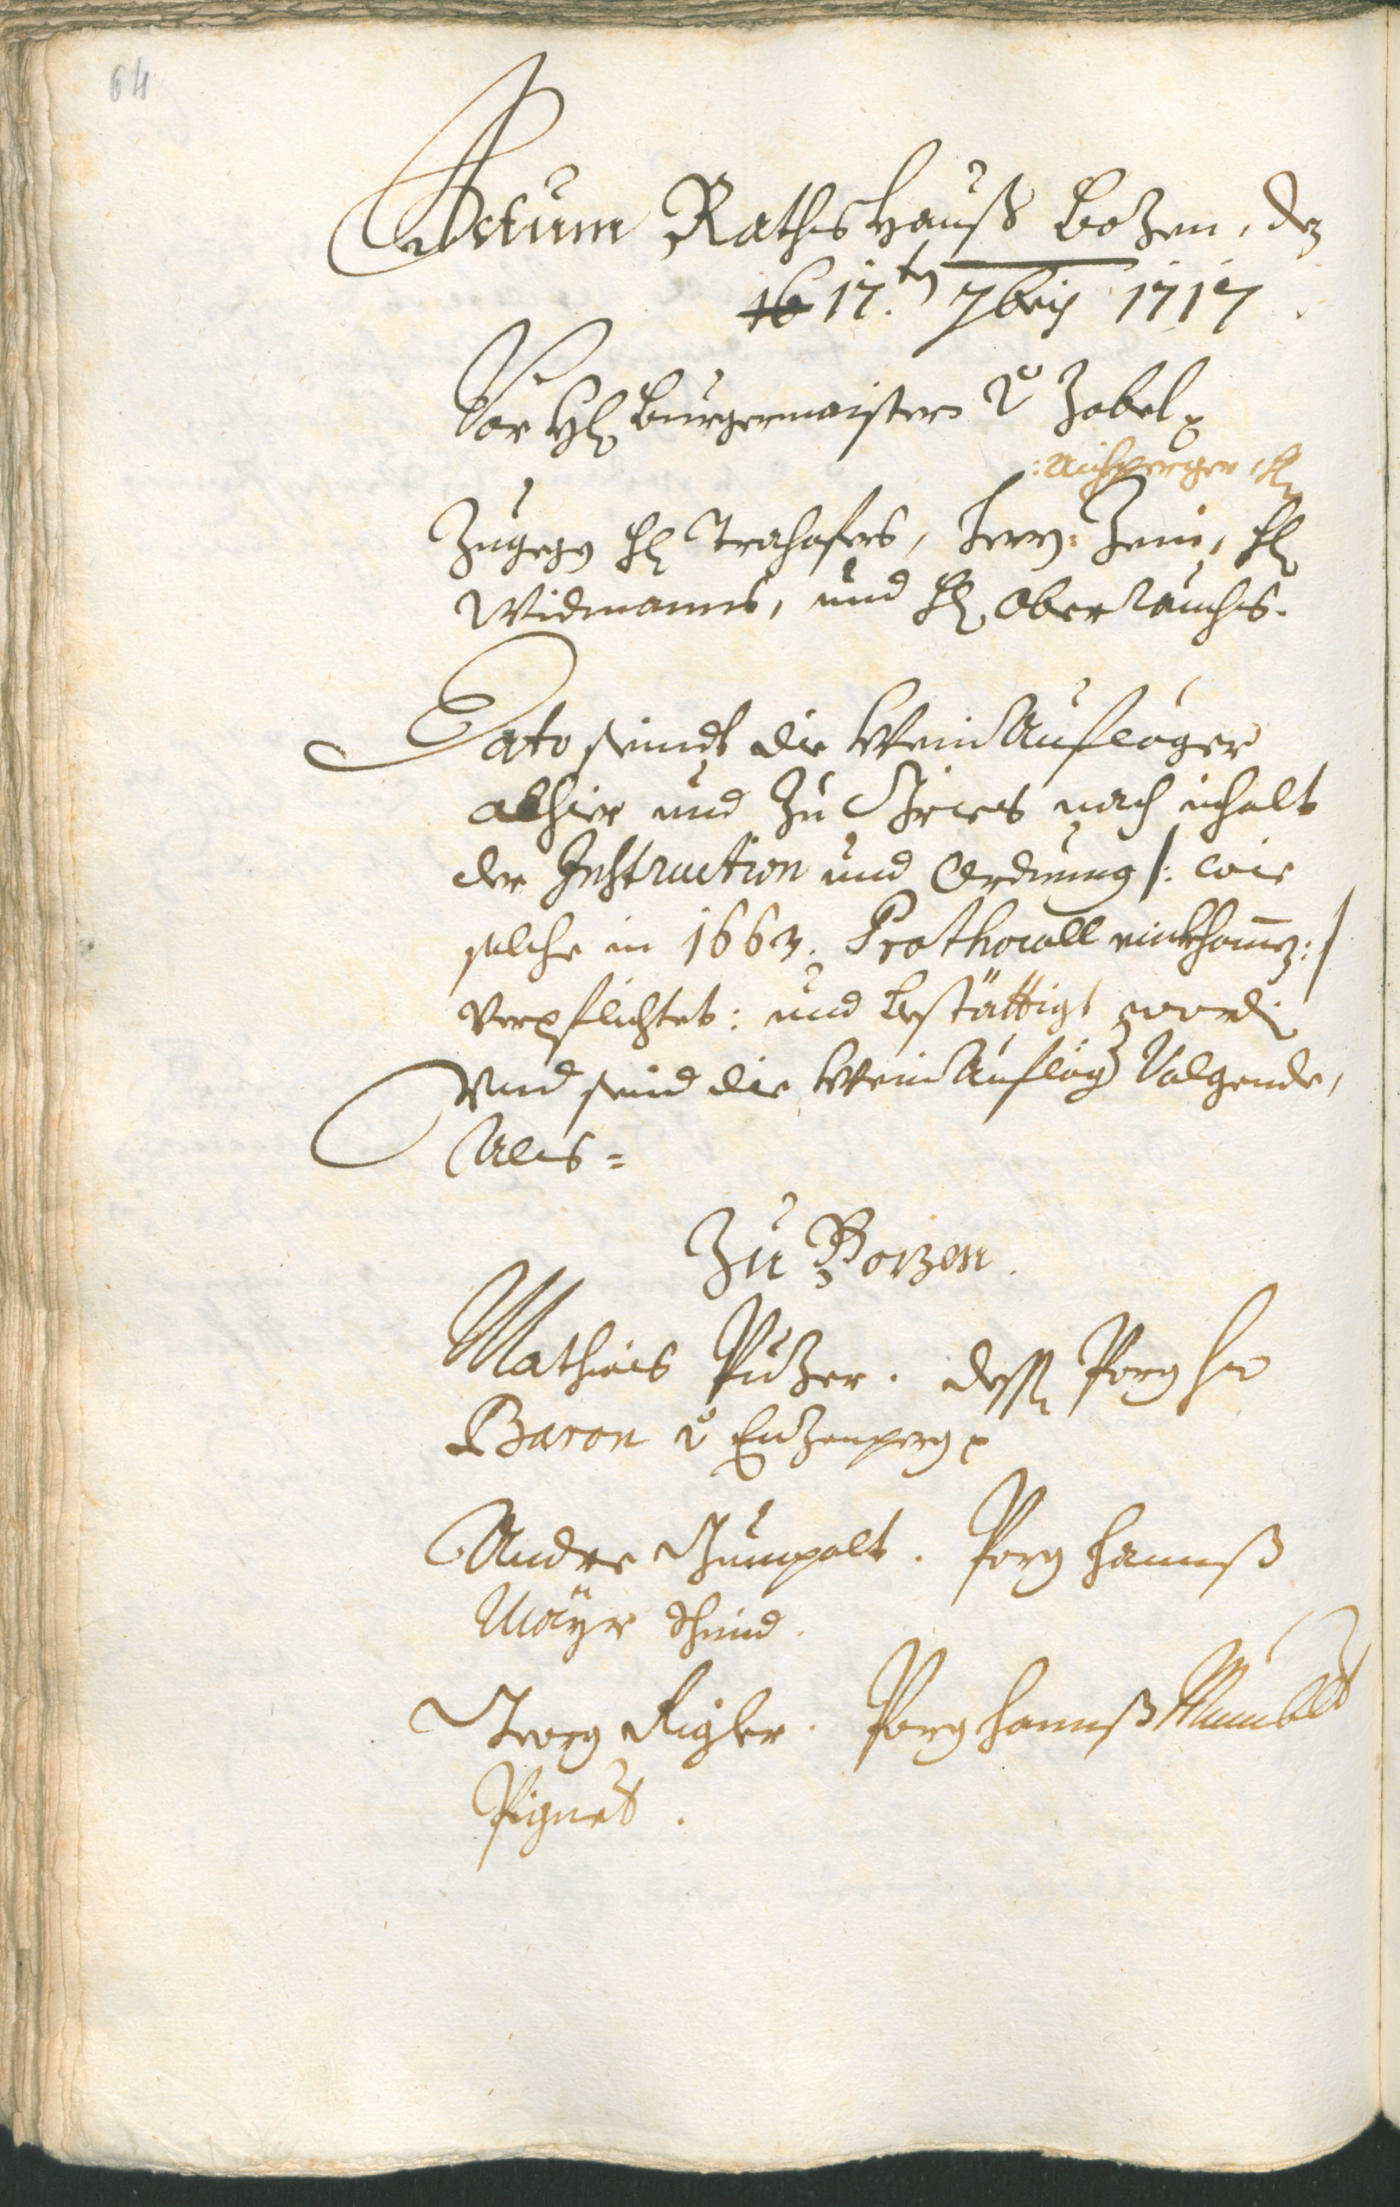 64
Actum Rathshauß Bozen, den
16 17.ten 7bris 1717
Vor H: Burgermaister v. Zobel
: Aichperger H:
Zugegen H: Trahofers, Ferr: Zeni, H:
Widmanns, und H: Oberrauchs.
Dato seindt die WeinAufleger
alhier und zu Gries nach inhalt
der Instruction und Ordnung /: wie
solche in 1663. Prothocoll einkhomen: /
verpflichtet: und bestättigt worden
Und seind die WeinAufleger Volgende,
Als =
Zu Bozen.
Mathias Puzer. dessen Porg Hr
Baron v. Enzenperg
Andre Gumpolt. Porg Hannß
Mayr Schmid.
Georg Rigler. Porg Hannß